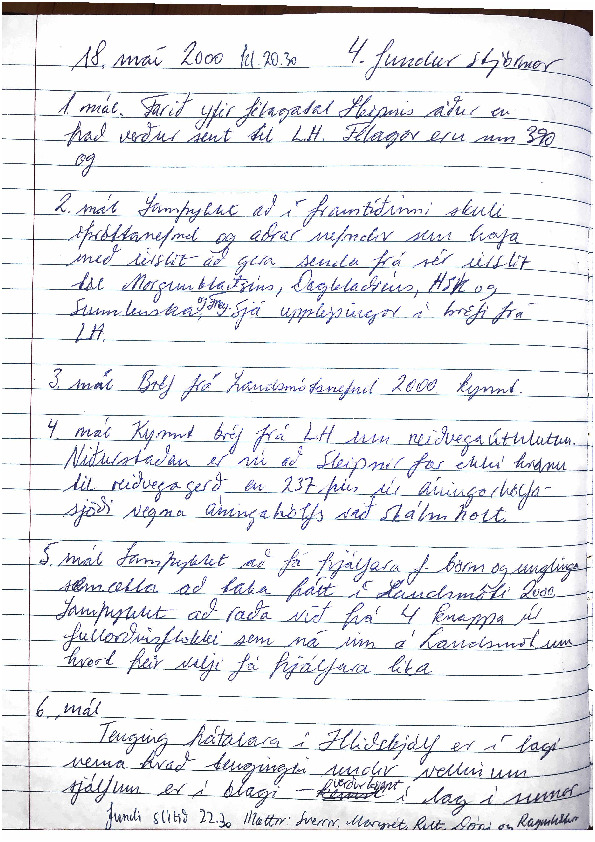 18. maí 2000 kl. 20.30 4. fundur stjórnar
1. mál. Farið yfir félagatal Sleipnis áður en
það verður sent til L.H. Félagar eru um 390
og
2. mál Samþykkt að í framtíðinni skuli
íþróttanefnd og aðrar nefndir sem hafa
með úrslit að gera senda frá sér úrslit
til Morgunblaðsins, Dagblaðsins, HSK og
Sunnlenska, sjá upplýsingar í bréfi frá
LH.
3. mál Bréf frá Landsmótsnefnd 2000 kynnt.
4. mál Kynnt bréf frá LH um reiðvegaúthlutun.
Niðurstaðan er sú að Sleipner fær ekki krónu
til reiðvegagerð en 237 þús úr áningarhólfa-
sjóði vegna áningahólfs við Skálmholt.
5. mál Samþykkt að fá þjálfara f. börn og unglinga
sem ætla að taka þátt í Landsmóti 2000
Samþykkt að ræða við þá 4 knapa úr
fullorðinsflokki sem ná inn á Landsmót um
hvort þeir vilji fá þjálfara líka
6. mál
Tenging hátalara í Hliðskjálf er í lagi
nema hvað tengingin undir vellinum
sjálfum er í ólagi – verður komið í lag í sumar
Fundi slitið 22.30 Mættir: Sverrir, Margrét,